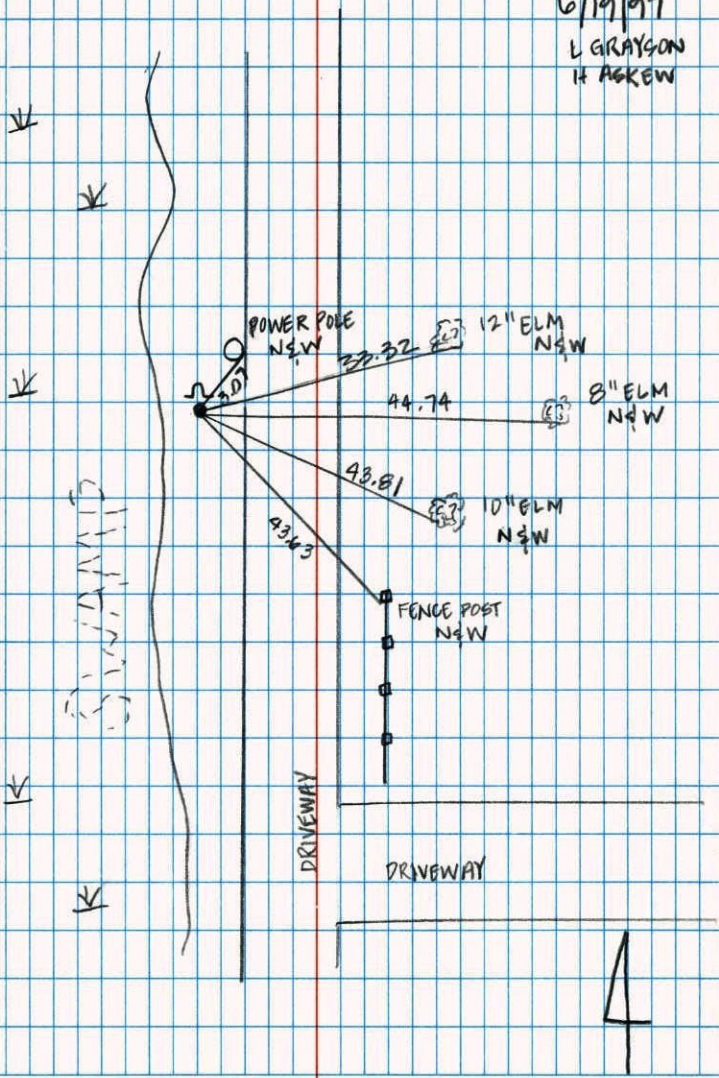 6/19/97
L GRAYSON
H ASKEW
POWER POLE
N&W
12" ELM
N&W
33.32
3.07
8" ELM
N&W
44.74
43.81
10" ELM
N&W
43.63
FENCE POST
N&W
SWAMP
DRIVEWAY
DRIVEWAY